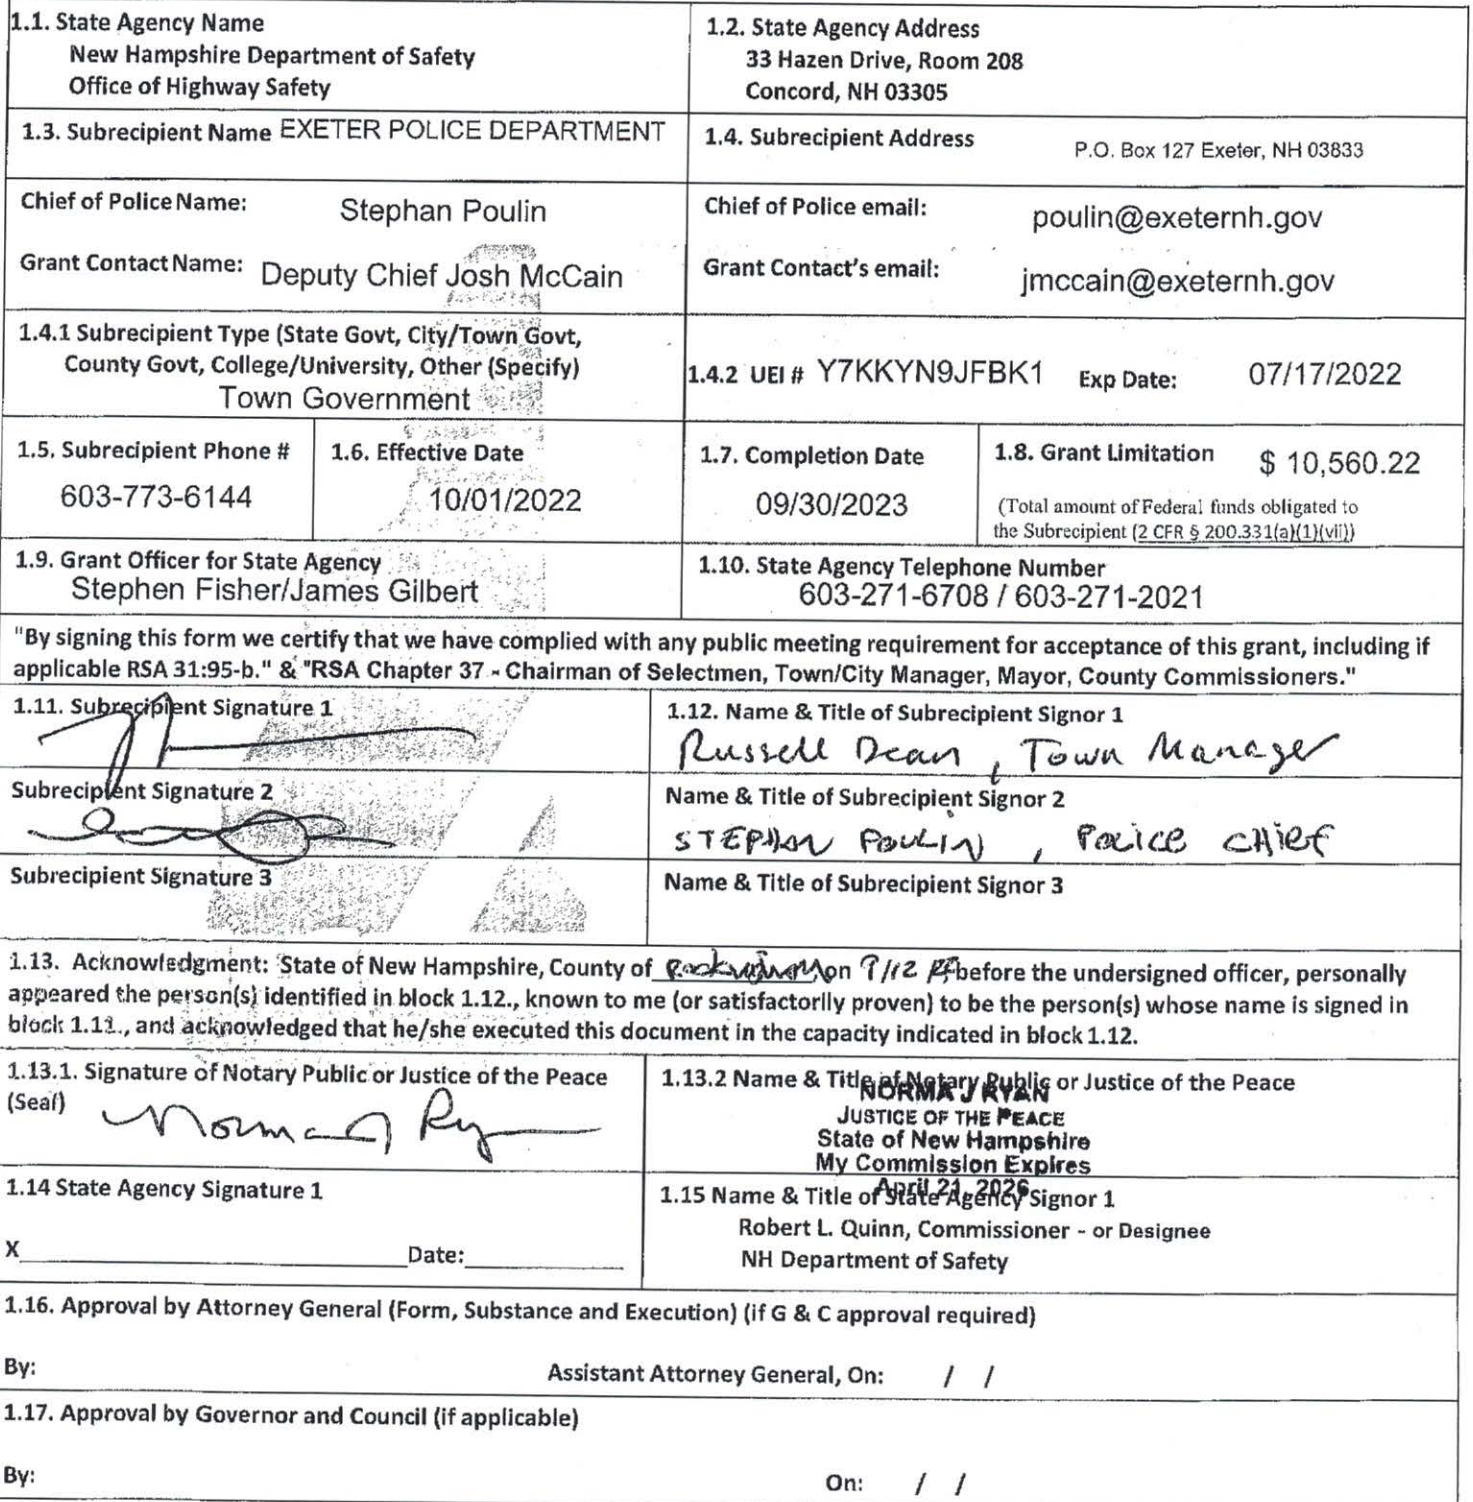 1.1. State Agency Name
New Hampshire Department of Safety
Office of Highway Safety
1.2. State Agency Address
33 Hazen Drive, Room 208
Concord, NH 03305
1.3. Subrecipient Name EXETER POLICE DEPARTMENT
1.4. Subrecipient Address P.O. Box 127 Exeter, NH 03833
Chief of Police Name: Stephan Poulin
Grant Contact Name: Deputy Chief Josh McCain
Chief of Police email: poulin@exeternh.gov
Grant Contact's email: jmccain@exeternh.gov
1.4.1 Subrecipient Type (State Govt, City/Town Govt,
County Govt, College/University, Other (Specify)
Town Government
1.4.2 UEI # Y7KKYN9JFBK1 Exp Date: 07/17/2022
1.5. Subrecipient Phone #
603-773-6144
1.6. Effective Date
10/01/2022
1.7. Completion Date
09/30/2023
1.8. Grant Limitation $ 10,560.22
(Total amount of Federal funds obligated to
the Subrecipient (2 CFR § 200.331(a)(1)(vii))
1.9. Grant Officer for State Agency
Stephen Fisher/James Gilbert
1.10. State Agency Telephone Number
603-271-6708 / 603-271-2021
"By signing this form we certify that we have complied with any public meeting requirement for acceptance of this grant, including if
applicable RSA 31:95-b." & "RSA Chapter 37 - Chairman of Selectmen, Town/City Manager, Mayor, County Commissioners."
1.11. Subrecipient Signature 1
1.12. Name & Title of Subrecipient Signor 1
Russell Dean, Town Manager
Subrecipient Signature 2
Name & Title of Subrecipient Signor 2
STEPHAN POULIN, POLICE CHIEF
Subrecipient Signature 3
Name & Title of Subrecipient Signor 3
1.13. Acknowledgment: State of New Hampshire, County of Rockingham on 9/12 before the undersigned officer, personally
appeared the person(s) identified in block 1.12., known to me (or satisfactorily proven) to be the person(s) whose name is signed in
block 1.11., and acknowledged that he/she executed this document in the capacity indicated in block 1.12.
1.13.1. Signature of Notary Public or Justice of the Peace
(Seal)
Norma J Ryan
1.13.2 Name & Title of Notary Public or Justice of the Peace
NORMA J RYAN
JUSTICE OF THE PEACE
State of New Hampshire
My Commission Expires
April 21, 2026
1.14 State Agency Signature 1
X Date:
1.15 Name & Title of State Agency Signor 1
Robert L. Quinn, Commissioner - or Designee
NH Department of Safety
1.16. Approval by Attorney General (Form, Substance and Execution) (if G & C approval required)
By: Assistant Attorney General, On: / /
1.17. Approval by Governor and Council (if applicable)
By: On: / /